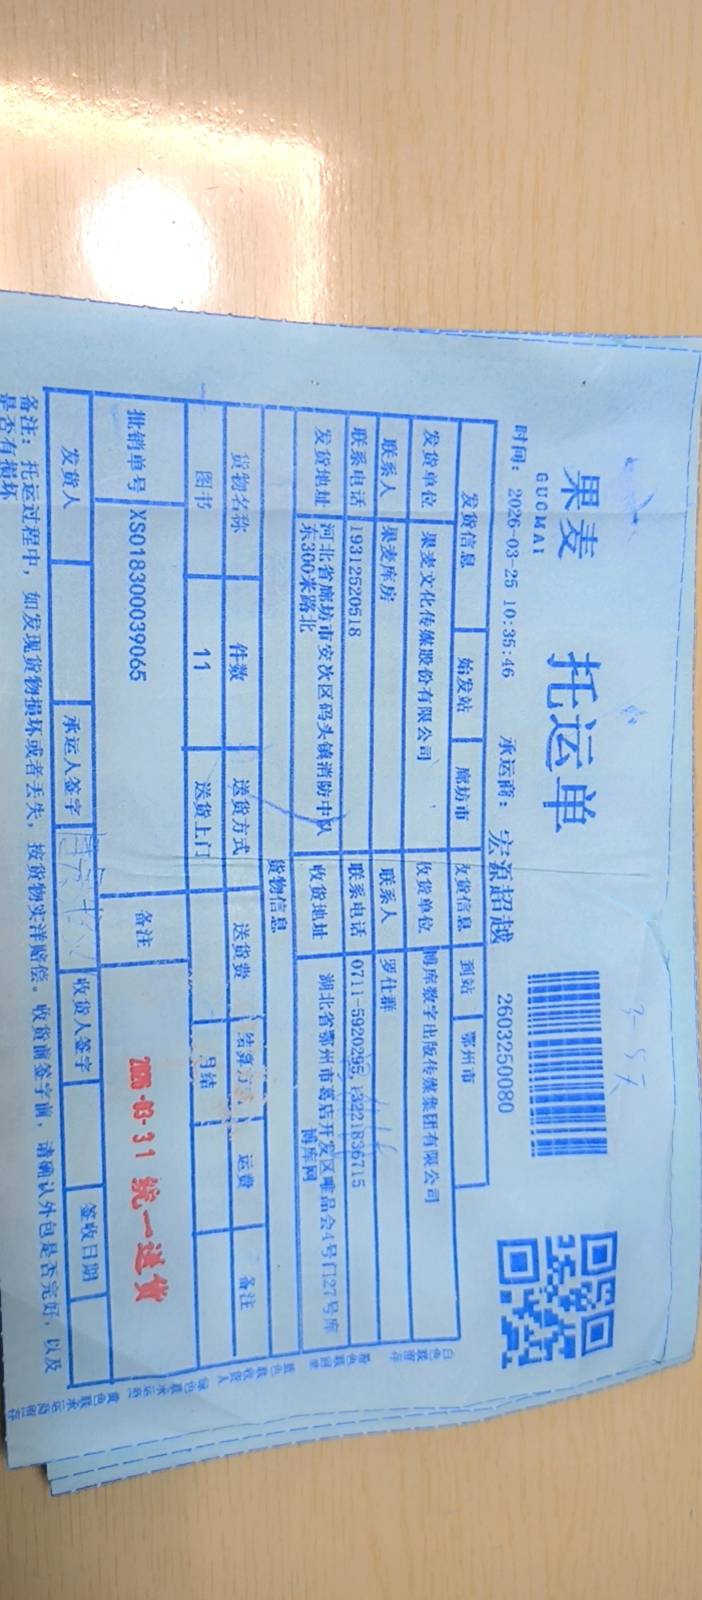 果麦 托运单
GUOMAI
时间： 2026-03-25 10:35:46 承运商： 宏盈超越 2603250080
发货信息 始发站 廊坊市 收货信息 到站 鄂州市
发货单位 果麦文化传媒股份有限公司 收货单位 博库数字出版传媒集团有限公司
联系人 果麦库房 联系人 罗仕群
联系电话 19312520518 联系电话 0711-5920295, 13221836715
发货地址 河北省廊坊市安次区码头镇消防中队东300米路北 收货地址 湖北省鄂州市葛店开发区唯品会4号门27号库博库网
货物信息
货物名称 件数 送货方式 送货费 结算方式 运费 备注
图书 11 送货上门 月结
批销单号 XS018300039065 备注
2026-03-31 统一送货
发货人 承运人签字 收货人签字 签收日期
备注：托运过程中，如发现货物损坏或者丢失，按货物实洋赔偿。收货前签字前，请确认外包是否完好，以及
是否有损坏